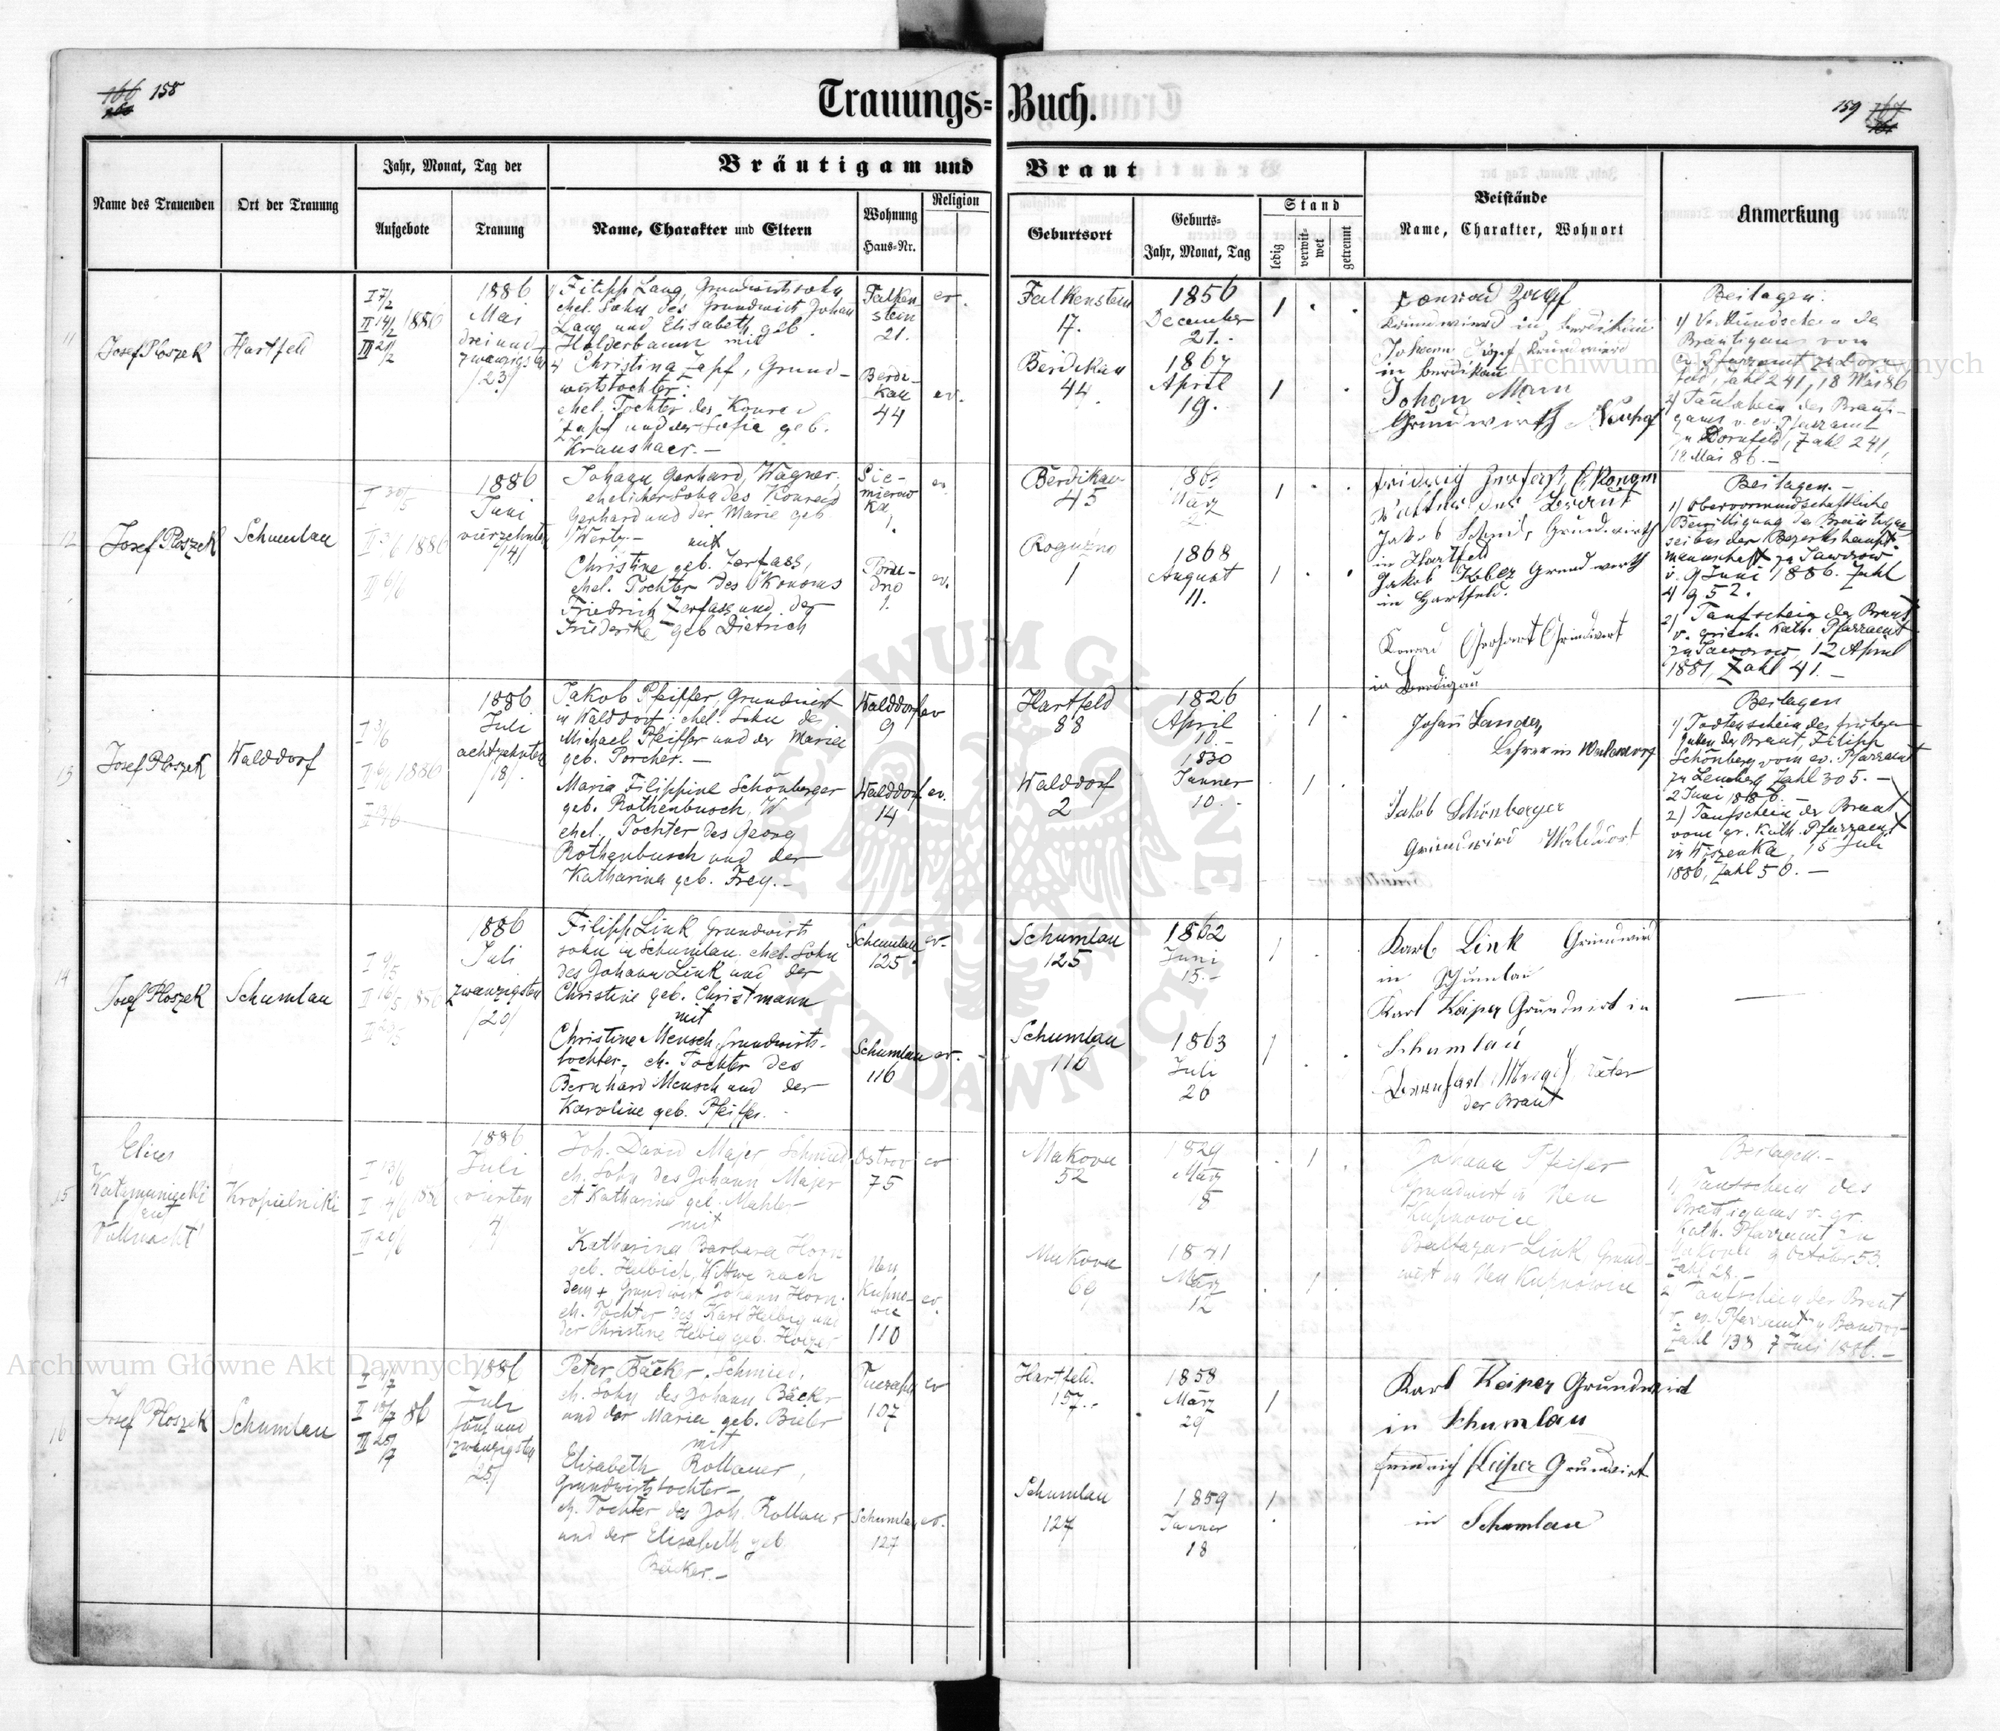 158
Trauungs=Buch.
159
Name des Trauenden
Ort der Trauung
Jahr, Monat, Tag der
Aufgebote
Trauung
Bräutigam und Braut
Name, Charakter und Eltern
Wohnung
Haus=Nr.
Religion
Geburtsort
Geburts=
Jahr, Monat, Tag
Stand
ledig
verwit=
wet
getrennt
Beistände
Name, Charakter, Wohnort
Anmerkung
11
Josef Ploszek
Hartfeld
1886
1886
Mai
dreiund
zwanzigsten
/23/
Filipp Lang, Grundwirtssohn
ehel. Sohn des Grundwirt Johann
Lang und Elisabeth geb.
Halderbaum mit
Christina Zapf, Grund-
wirtstochter:
ehel. Tochter des Konrad
Zapf und der Sofie geb.
Kraushaer. —
Falken
stein
21.
ev.
Berdi-
kau
44
ev.
Falkenstein
17.
1856
December
21.
Berdikau
44.
1867
April
19.
Konrad Zapf
Grundwirth in Berdikau
in Berdikau
Johan Mann
Grundwirth
Beilagen:
1) Verkündschein des
Bräutigams vom
ev. Pfarramt zu Dorn-
feld, Zahl 241, 18 Mai 86
2) Taufschein des Bräuti-
gams v. ev. Pfarramt
zu Dornfeld, Zahl 241,
18 Mai 86. —
12
Josef Ploszek
Schumlau
1886
1886
Juni
vierzehnten
/14/
Johann Gerhard, Wagner,
ehelicher Sohn des Konrad
Gerhard und der Marie geb
Werty — mit
Christine geb. Zerfass,
ehel. Tochter des Ökonoms
Friedrich Zerfass und der
Friederike geb Dietrich
Sie-
mierow
ka
1.
ev.
ev.
1.
Berdikau
45
März
Roguzno
1
1868
August
11.
Vatter des Braut
Jakob Schmid, Grundwirth
in Hartfeld
Jakob Kobler Grundwirth
in Hartfeld.
Konrad Gerhart Grundwirt
in Berdigau
Beilagen. —
1) Obervormundschaftliche
Bewilligung des Bräutigam
seitens der Bezirkshaupt
mannschaft zu Jaworow
v. 9 Juni 1886. Zahl
4952.
2) Taufschein der Braut
v. griech. kath. Pfarramt
zu Jaworow, 12 April
1881, Zahl 41. —
13
Josef Ploszek
Walddorf
1886
1886
Juli
achtzehnten
/18/
Jakob Pfeiffer, Grundwirt
in Walddorf; ehel. Sohn des
Michael Pfeiffer und der Marie
geb. Porcher. —
Maria Filippine Schönberger
geb. Rothenbusch, W
ehel. Tochter des Georg
Rothenbusch und der
Katharina geb. Frey. —
Walddorf
9
ev
Walddorf
14
ev.
Hartfeld
88
1826
April
10.
Walddorf
2
1830
Jänner
10.
Johann Sander
Lehrer in Walddorf
Jakob Schönberger
Grundwird Walddorf
Beilagen
1) Todtenschein des früheren
Gatten der Braut, Filipp
Schönberg vom ev. Pfarramt
zu Lemberg Zahl 305. —
2 Juni 1886. —
2) Taufschein der Braut
vom gr. kath. Pfarramt
in Wiszenka, 15 Juli
1886, Zahl 56. —
14
Josef Ploszek
Schumlau
1886
1886
Juli
zwanzigsten
/20/
Filipp Link Grundwirts
sohn in Schumlau, ehel. Sohn
des Johann Link und der
Christine geb. Christmann
mit
Christine Mensch, Grundwirts-
tochter, eh. Tochter des
Bernhard Mensch und der
Karoline geb. Pfeiffer. —
Schumlau
125
ev.
Schumlau
116
ev.
Schumlau
125
1862
Juni
15. —
Schumlau
116
1863
Juli
26
Karl Link Grundwird
in Schumlau
Karl Keiper Grundwirt in
Schumlau
Vater
der Braut
15
auf
Vollmacht
Kropielniki
1886
1886
Juli
vierten
4
Joh. David Majer Schmied
eh. Sohn des Johann Majer
et Katharina geb. Mahler
mit
Katharina Barbara Horn
geb. Helbich, Witwe nach
dem + Grundwirt Johann Horn.
eh. Tochter des Karl Helbig und
der Christine Helbig geb.
Ostrow
75
ev
Neu
Kupno-
wie
110
ev.
Makova
52
1829
März
18
Makova
69
März
12
Johann Pfeifer
Grundwirt in Neu
Kupnowice
Baltazar Link Grund-
wirt in Neu Kupnowice
Beilagen. —
1) Taufschein des
Bräutigams v. gr.
kath. Pfarramt in
Makova 9 October 53.
Zahl 28. —
2 Taufschein der Braut
v. ev. Pfarramt
Zahl 138 7 Juli 1886. —
16
Josef Ploszek
Schumlau
86
1886
Juli
fünf und
zwanzigsten
25/
Peter Bäcker, Schmied,
eh. Sohn des Johann Bäcker
und der Maria geb. Bieler
mit
Elisabeth Rollauer,
Grundwirtstochter —
eh. Tochter des Joh. Rollauer
und der Elisabeth geb.
Bäcker. —
107
ev
Schumlau
127
ev.
Hartfeld.
157.
1858
März
29
Schumlau
127
1859
Jänner
18
Karl Keiper Grundwird
in Schumlau
Friedrich Keiper Grundwirt
in Schumlau
Archiwum Główne Akt Dawnych
Archiwum Główne Akt Dawnych
ARCHIWUM GŁÓWNE AKT DAWNYCH